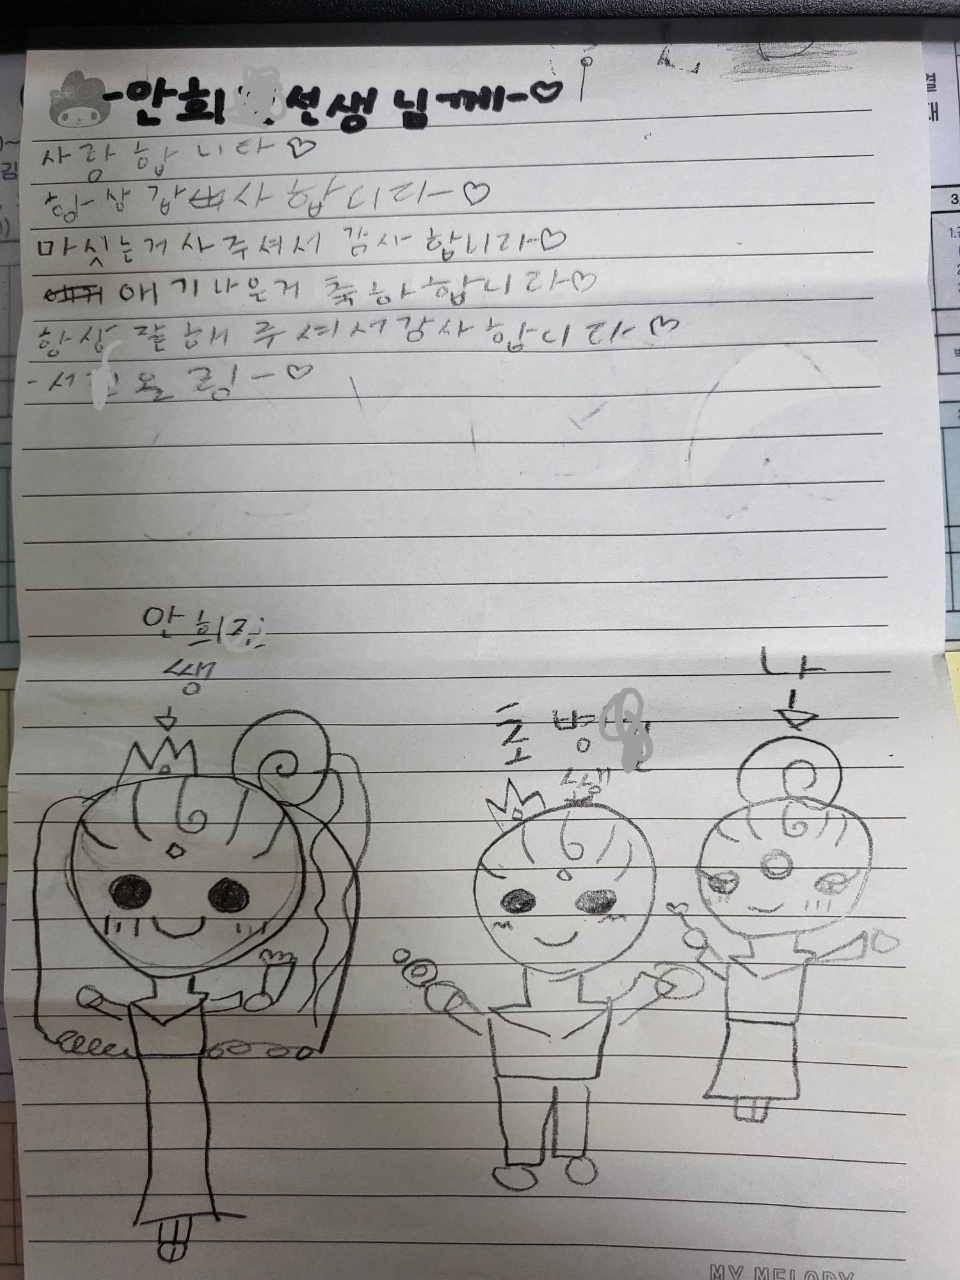 -안희 선생님께-♡
사랑합니다♡
항상 감사합니다-♡
마싯는거 사주셔서 감사합니다-♡
애기나은거 축하합니다-♡
항상 잘해주셔서감사합니다-♡
-서 올림-♡
안희진
쌤
초병
쌤
나
MY MELODY